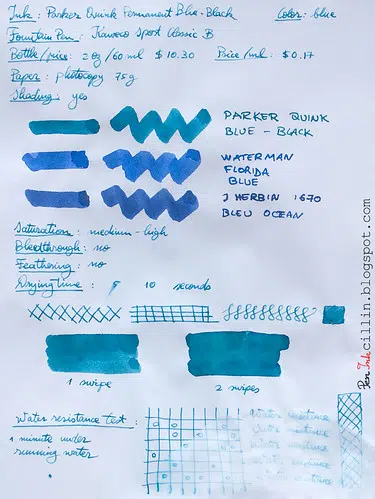 Ink: Parker Quink Permanent Blue-Black Color: blue
Fountain Pen: Kaweco Sport Classic B
Bottle/price: 2oz/60 ml $10.30 Price/ml: $0.17
Paper: photocopy 75g
Shading: yes
PARKER QUINK
BLUE - BLACK
WATERMAN
FLORIDA
BLUE
J HERBIN 1670
BLEU OCEAN
Saturation: medium-high
Bleedthrough: no
Feathering: no
Drying time: 10 seconds
1 swipe 2 swipes
Water resistance test:
1 minute under
running water
Water resistance
Water resistance
Water resistance
Water resistance
Water resistance
Pen Ink cillin.blogspot.com